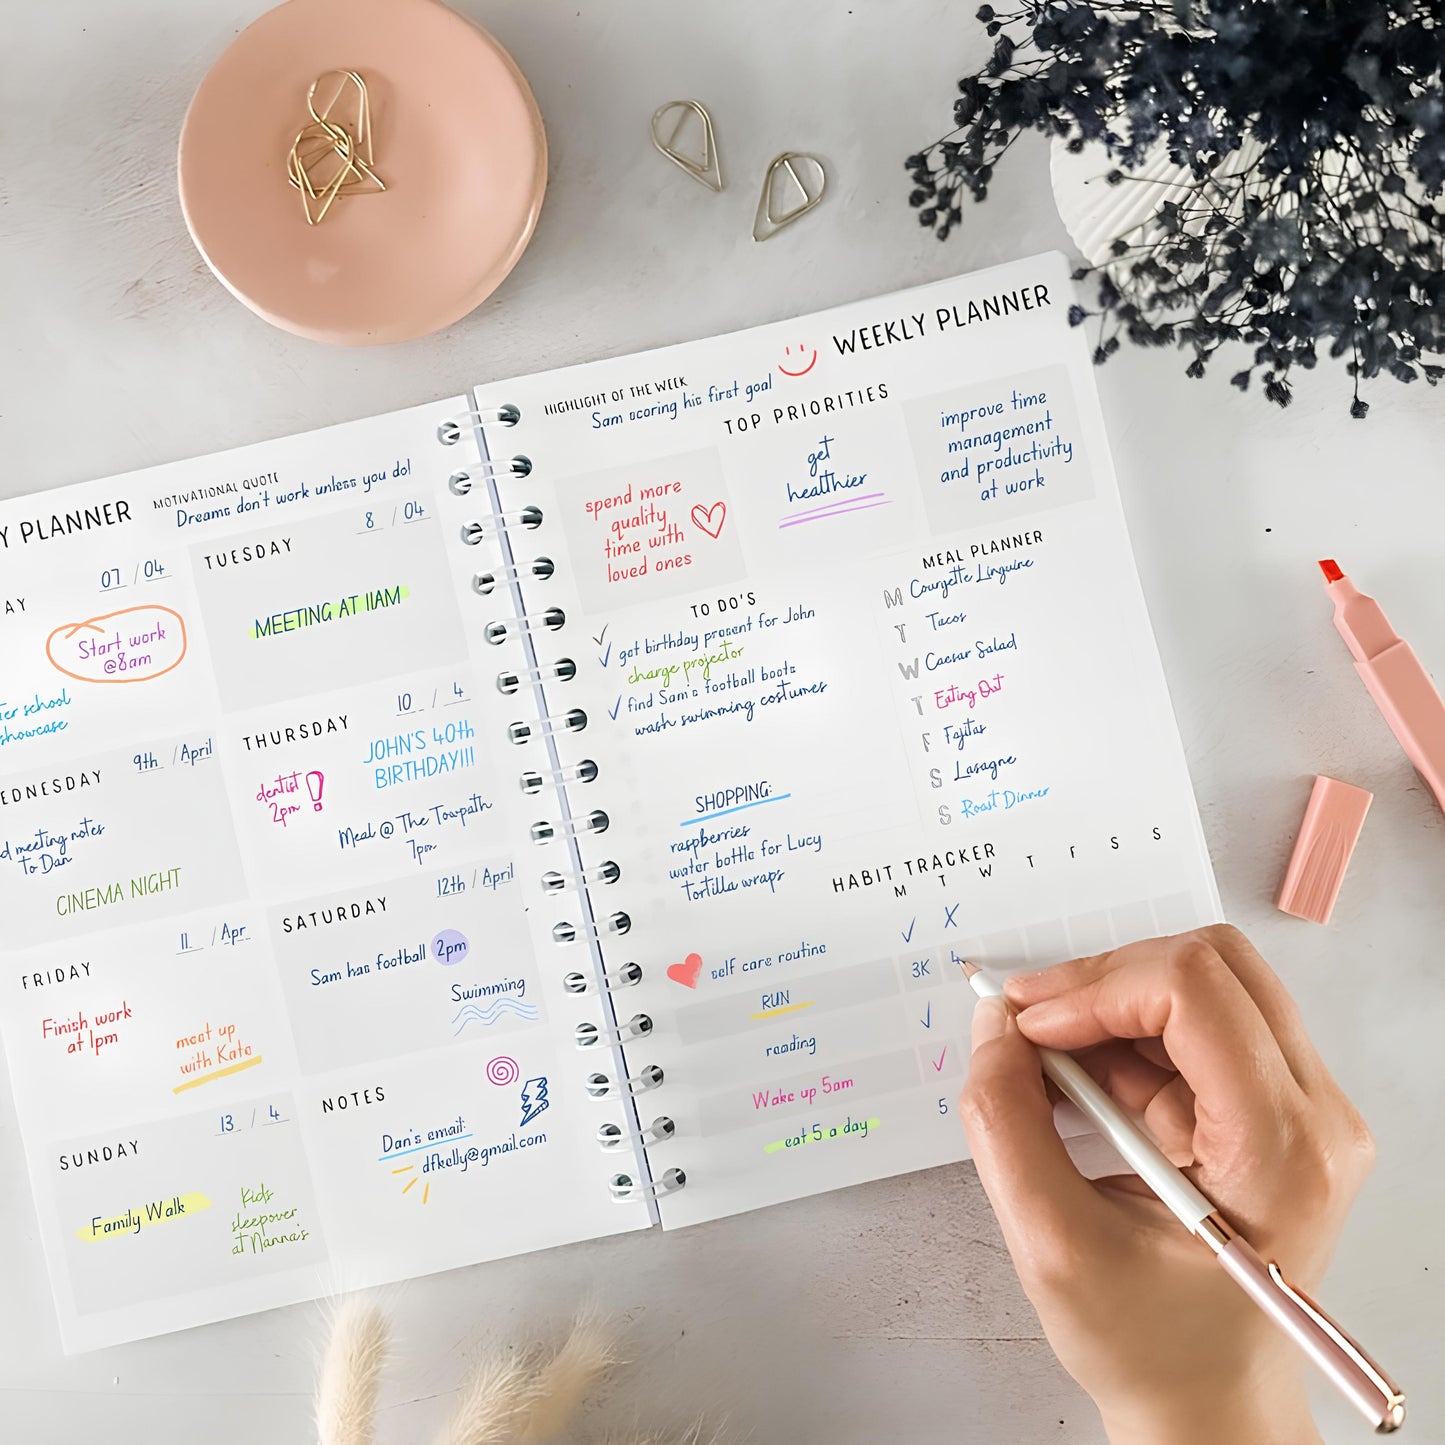 PLANNER
MOTIVATIONAL QUOTE
Dreams don't work unless you do!
07 / 04
Start work
@8am
school
showcase
TUESDAY
8 / 04
MEETING AT 11AM
9th / April
meeting notes
to Dan
CINEMA NIGHT
THURSDAY
10 / 4
JOHN'S 40th
BIRTHDAY!!!
dentist
2pm !
Meal @ The Towpath
7pm
FRIDAY
11 / Apr
Finish work
at 1pm
meet up
with Kate
SATURDAY
12th / April
Sam has football 2pm
Swimming
SUNDAY
13 / 4
Family Walk
Kids
sleepover
at Nanna's
NOTES
Dan's email:
dfkelly@gmail.com
WEEKLY PLANNER
HIGHLIGHT OF THE WEEK
Sam scoring his first goal
TOP PRIORITIES
spend more
quality
time with
loved ones
get
healthier
improve time
management
and productivity
at work
TO DO'S
✓
✓ get birthday present for John
charge projector
✓ find Sam's football boots
wash swimming costumes
SHOPPING:
raspberries
water bottle for Lucy
Tortilla wraps
MEAL PLANNER
M Courgette Linguine
T Tacos
W Caesar Salad
T Eating Out
F Fajitas
S Lasagne
S Roast Dinner
HABIT TRACKER
M T W T F S S
self care routine ✓ X
RUN 3K 4
reading ✓
Wake up 5am ✓
eat 5 a day 5